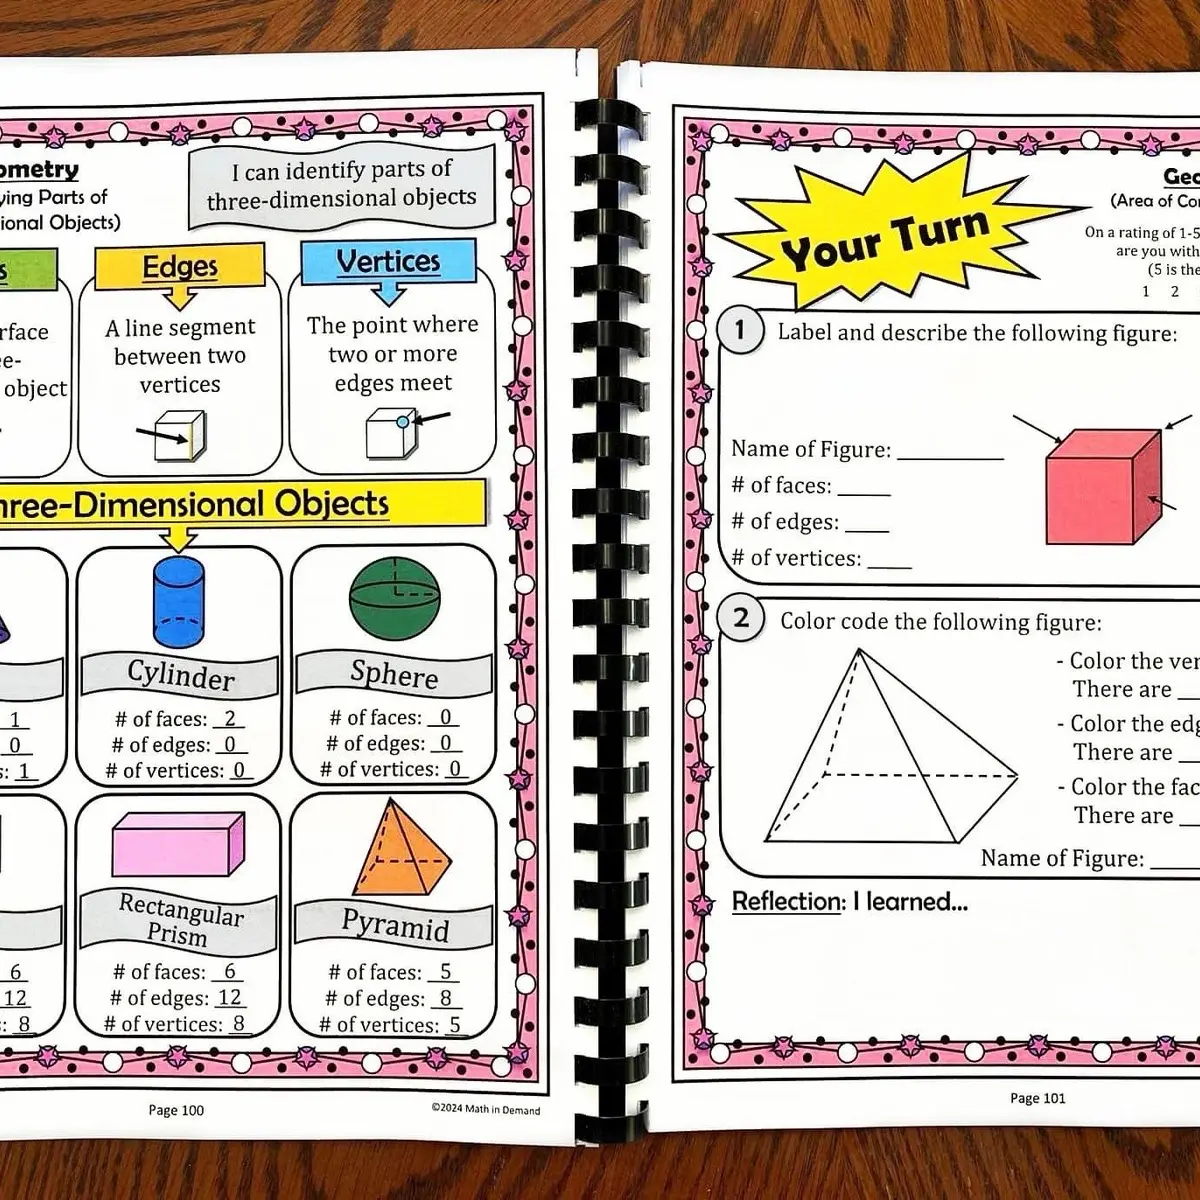 ometry
ying Parts of
ional Objects)
I can identify parts of
three-dimensional objects
s
rface
ee-
object
Edges
A line segment
between two
vertices
Vertices
The point where
two or more
edges meet
hree-Dimensional Objects
1
0
: 1
Cylinder
# of faces: 2
# of edges: 0
# of vertices: 0
Sphere
# of faces: 0
# of edges: 0
# of vertices: 0
6
12
: 8
Rectangular
Prism
# of faces: 6
# of edges: 12
# of vertices: 8
Pyramid
# of faces: 5
# of edges: 8
# of vertices: 5
Page 100
©2024 Math in Demand
Your Turn
Geo
(Area of Co
On a rating of 1-5
are you with
(5 is the
1 2
1 Label and describe the following figure:
Name of Figure:
# of faces:
# of edges:
# of vertices:
2 Color code the following figure:
- Color the ver
There are
- Color the edg
There are
- Color the fac
There are
Name of Figure:
Reflection: I learned...
Page 101